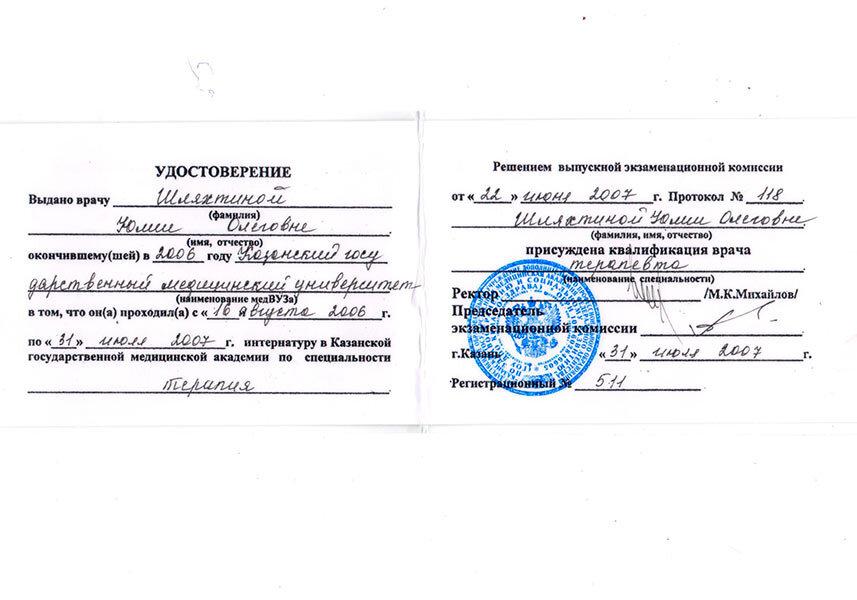 УДОСТОВЕРЕНИЕ
Выдано врачу Шляхтиной
(фамилия)
Юлии Олеговне
(имя, отчество)
окончившему(шей) в 2006 году Казанский госу
дарственный медицинский университет
(наименование медВУЗа)
в том, что он(а) проходил(а) с « 16 августа 2006 г.
по « 31 » июля 2007 г. интернатуру в Казанской
государственной медицинской академии по специальности
терапия
Решением выпускной экзаменационной комиссии
от « 22 » июня 2007 г. Протокол № 118.
Шляхтиной Юлии Олеговне
(фамилия, имя, отчество)
присуждена квалификация врача
терапевта
(наименование специальности)
Ректор /М.К.Михайлов/
Председатель
экзаменационной комиссии
г.Казань « 31 » июля 2007 г.
Регистрационный № 511